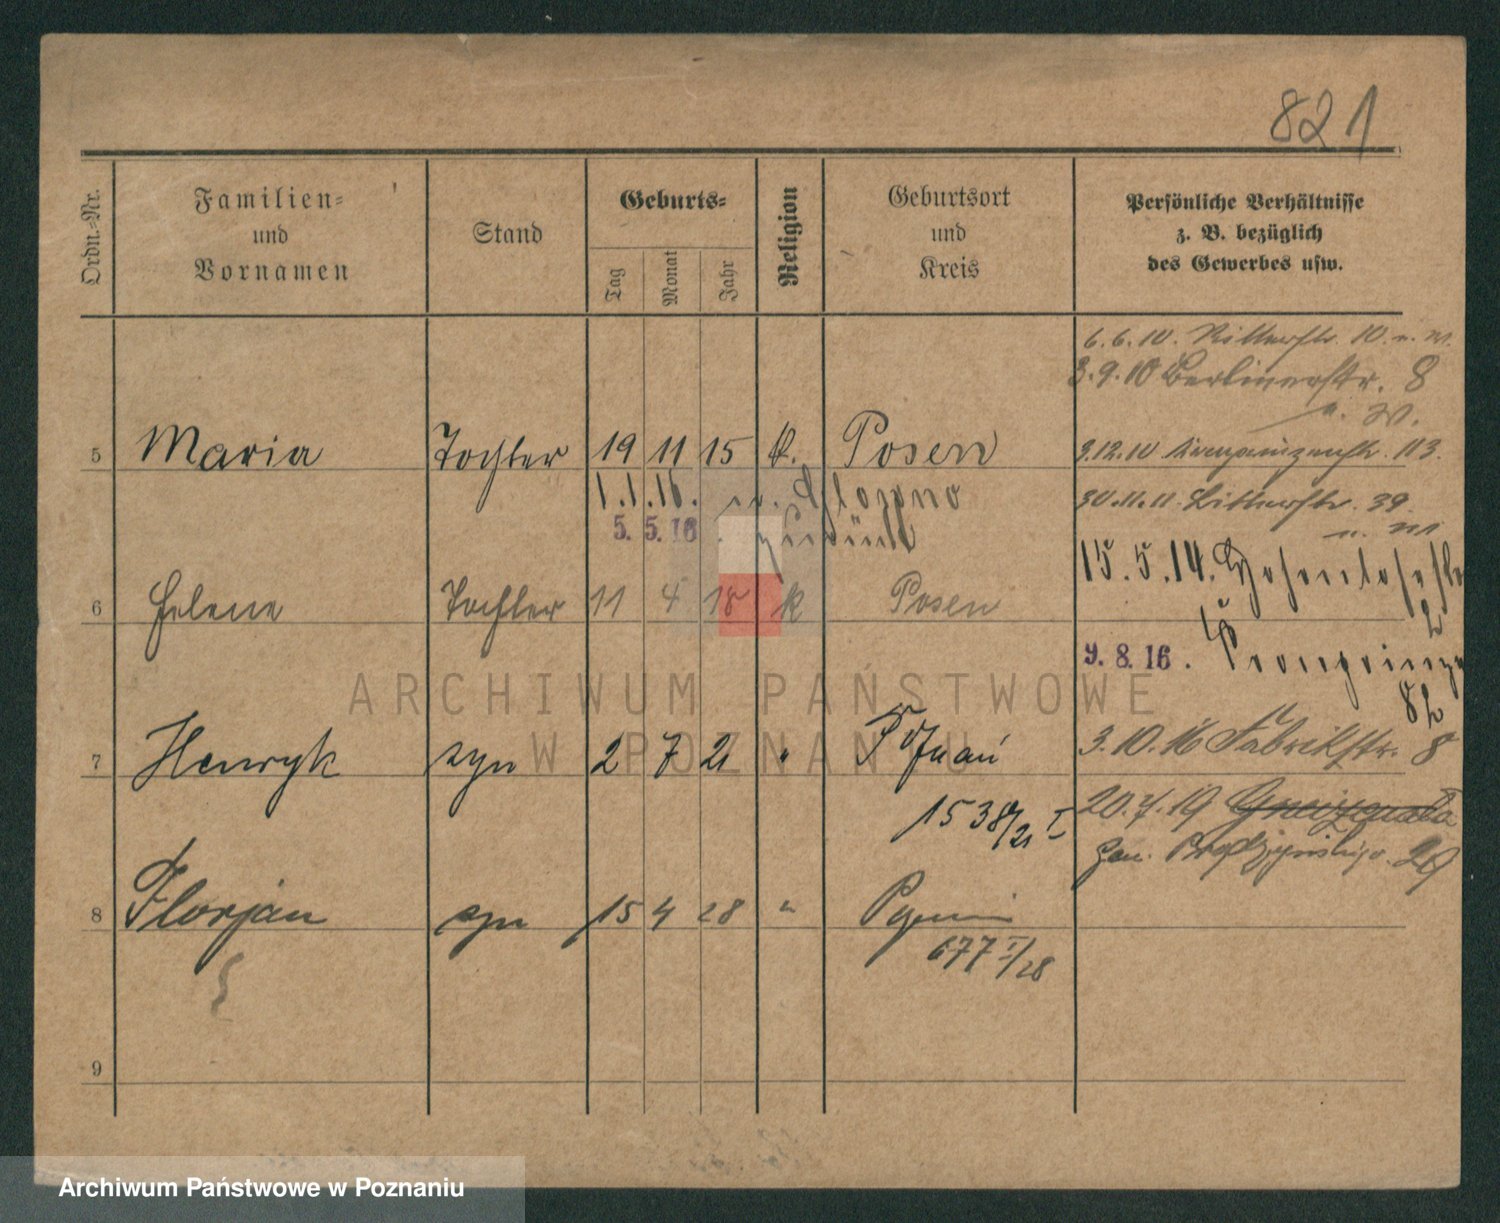 821
Ordn.-Nr.
Familien-
und
Vornamen
Stand
Geburts-
Tag
Monat
Jahr
Religion
Geburtsort
und
Kreis
Persönliche Verhältnisse
z. B. bezüglich
des Gewerbes usw.
6.6.10. Ritterstr. 10. u. W.
3.9.10 Berlinerstr. 8
u. W.
5 Maria Tochter 19 11 15 k. Posen
3.12.10 113.
1.1.16.
30.11.11. Ritterstr. 39.
5. 5. 16.
15.5.14. Hohenlohestr
6 Helene Tochter 11 4 18 k Posen
9. 8. 16. Kronprinze
82
ARCHIWUM PAŃSTWOWE
W POZNANIU
7 Henryk syn 2 7 21 " Poznań
3.10.16 Fabrikstr. 8
1538/21 I
20.7.19 Gneizenaua
Gen. Prądzyńskiego. 29
8 Florjan syn 15 4 28 "
677 I/28
9
Archiwum Państwowe w Poznaniu